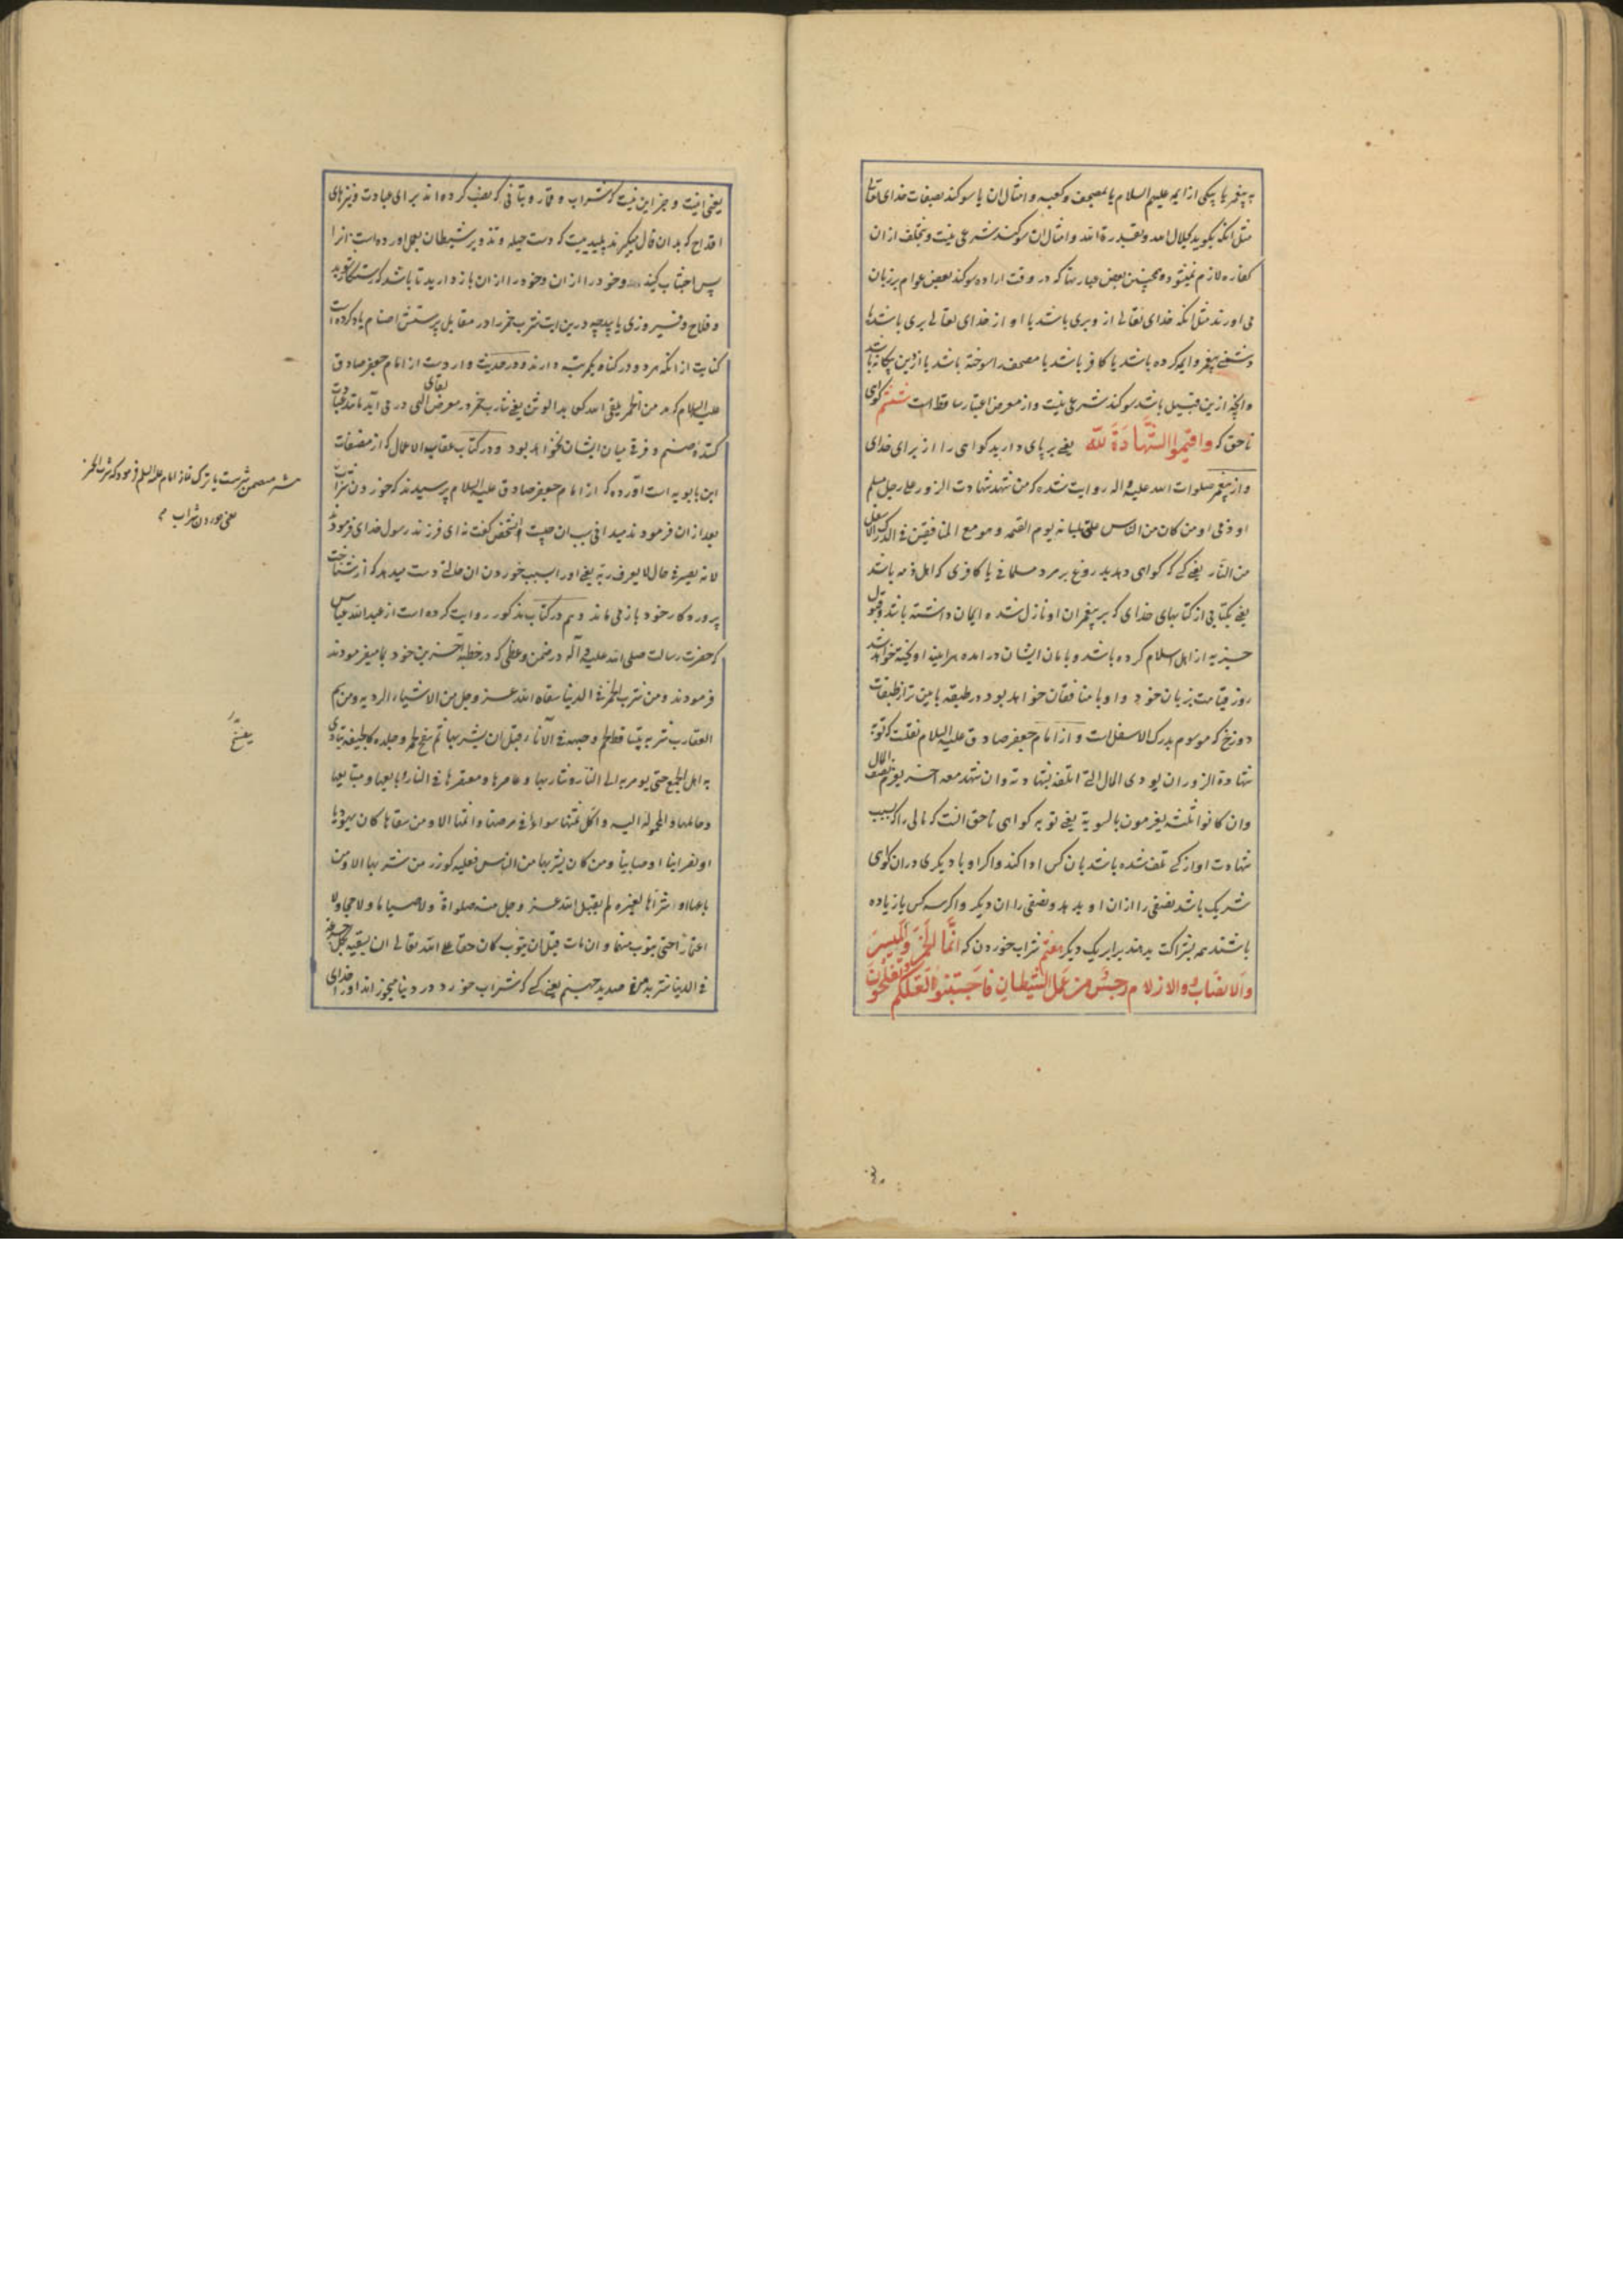 به پیغمبر یا بیکی از ایمه علیهم السلام یا بمصحف و کعبه و امثال ان یا سوکند بصفات خدای تعالی
مثل انکه بکوید بجلال الله و بقدرة الله و امثال ان سوکند شرعی نیست و بتخلف از ان
کفاره لازم نمیشود و همچنین بعض عبارتها که در وقت اراده سوکند بعض عوام بر زبان
می اورند مثل انکه خدای تعالی از و بری باشد یا او از خدای تعالی بری باشد یا
دشمنی پیغمبر و ایمه کرده باشد یا کافر باشد یا مصحف را سوخته باشد یا از دین بیکانه باشد
و انچه ازین قبیل باشد سوکند شرعی نیست و از معرض اعتبار ساقط است ششم کواهی
ناحق که واقیموا الشهادة لله یعنی بر پای دارید کواهی را از برای خدای
و از پیغمبر صلوات الله علیه واله روایت شده که من شهد شهادت الزور علی رجل مسلم
او ذمی او من کان من الناس علق بلسانه یوم القیمه و هو مع المنافقین فی الدرک الاسفل
من النار یعنی کسی که کواهی دهد بدروغ بر مرد مسلمانی یا کافری که اهل ذمه باشد
یعنی بکتابی از کتابهای خدای که بر پیغمبران او نازل شده ایمان داشته باشد و قبول
جزیه از اهل اسلام کرده باشد و بامان ایشان در امده هر اینه اویخته خواهد شد
روز قیامت بزبان خود و او با منافقان خواهد بود در طبقه پایین تر از طبقات
دوزخ که موسوم بدرک الاسفل است و از امام جعفر صادق علیه السلام نقلست که توبة
شهادة الزور ان یودی المال الذی اتلفه بشهادته وان شهد معه اخر یغرم نصف المال
وان کانوا ثلثه یغرمون بالسویة یعنی توبه کواهی ناحق انست که مالی را که بسبب
شهادت او از کسی تلف شده باشد بان کس ادا کند و اکر او با دیکری در ان کواهی
شریک باشد نصفی را از ان او بدهد و نصفی را ان دیکر و اکر سه کس یا زیاده
باشند همه بشراکت بدهند برابر یک دیکر هفتم شراب خوردن که انما الخمر والمیسر
والانصاب والازلام رجس من عمل الشیطان فاجتنبوا لعلکم تفلحون
یعنی انیست و جز این نیست که شراب و قمار و بتانی که نصب کرده اند برای عبادت و تیرهای
اقداح که بدان فال میکیرند پلیدیست که دست حیله و تذویر شیطان بعمل اورده است انرا
پس اجتناب کنید و خود را از ان و خود را از ان باز دارید تا باشد که رستکار شوید
و فلاح و فیروزی یابید چه درین ایت شرب خمر را در مقابل پرستش اصنام یاد کرده است
کنایت از انکه هر دو در کناه یکمرتبه دارند و در حدیث وارد است از امام جعفر صادق
علیه السلام که مدمن الخمر یلقی الله کعابد الوثن یعنی شارب خمر در معرض لقای الهی در می آید مانند عبادت
کنندهٔ صنم و فرقی میان ایشان نخواهد بود و در کتاب عقاب الاعمال که از مصنفات
ابن بابویه است آورده که از امام جعفر صادق علیه السلام پرسیدند که خوردن شراب
بعد از ان فرمودند میدانی سبب ان چیست انشخص کفت نه ای فرزند رسول خدای فرمود
لانه یصیر فی حال لا یعرف ربه یعنی او را بسبب خوردن ان حالتی دست میدهد که از شناخت
پروردکار خود باز می ماند و هم در کتاب مذکور روایت کرده است از عبد الله عباس
که حضرت رسالت صلی الله علیه و آله در ضمن وعظی که در خطبه آخرین خود بما میفرمودند
فرمودند و من شرب الخمر فی الدنیا سقاه الله عز وجل من الاشیاء الردیه و من سم
العقارب شربه یتساقط لحم وجهه فی الآناء قبل ان یشربها ثم لحمه و جلده کالجیفة یتاذی
به اهل الجمع حتی یومر به الی النار و شاربها و عاصرها و معتصرها فی النار و بایعها و مبتاعها
و حاملها و المحمولة الیه و اکل ثمنها سواء فی عرضها و اثمها الا ومن سقاها کان یهودیا
او نصرانیا او صابیا ومن کان یشربها من الناس فعلیه کوزر من شربها الا ومن
باعها او اشتراها لغیره لم یقبل الله عز وجل منه صلواة ولا صیاما ولا حجا ولا
اعتمارا حتی یتوب منها وان مات قبل ان یتوب کان حقا علی الله تعالی ان یسقیه بکل جرعة
فی الدنیا شربة من صدید جهنم یعنی کسی که شراب خورد در دنیا میخوراند او را خدای
یا ترک نماز امام علیه السلم فرمود که شرب الخمر
یعنی خوردن شراب